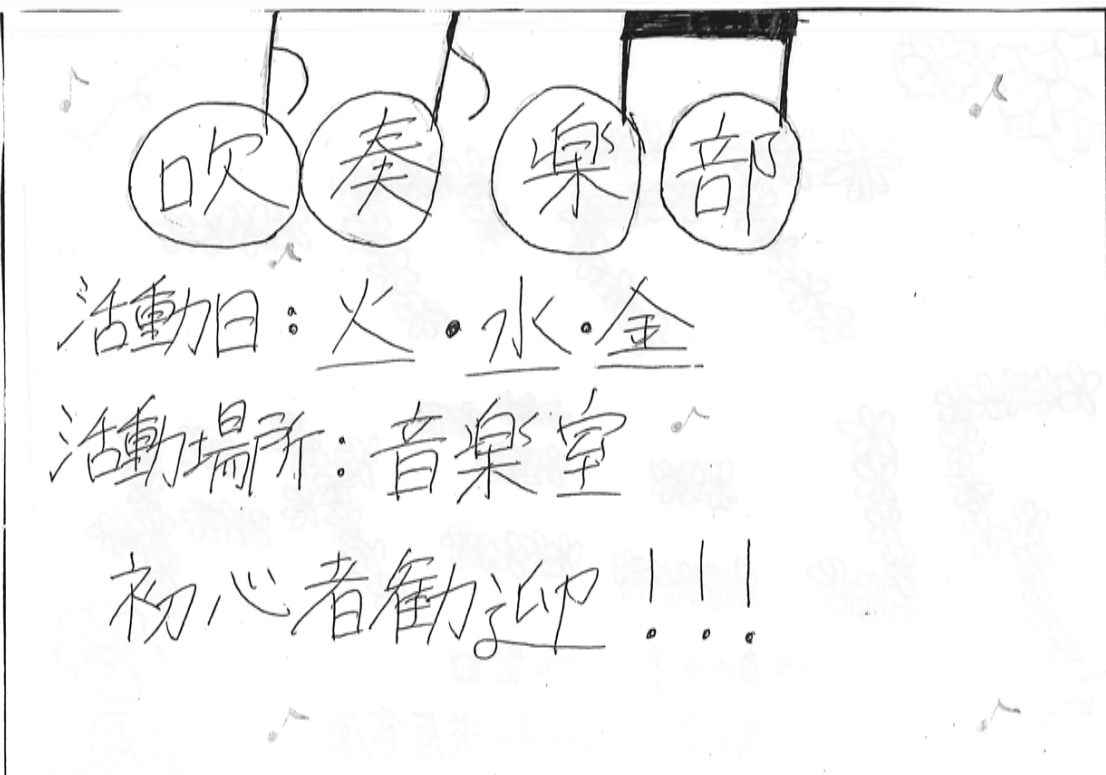 吹奏楽部
活動日:火・水・金
活動場所:音楽室
初心者勧迎!!!